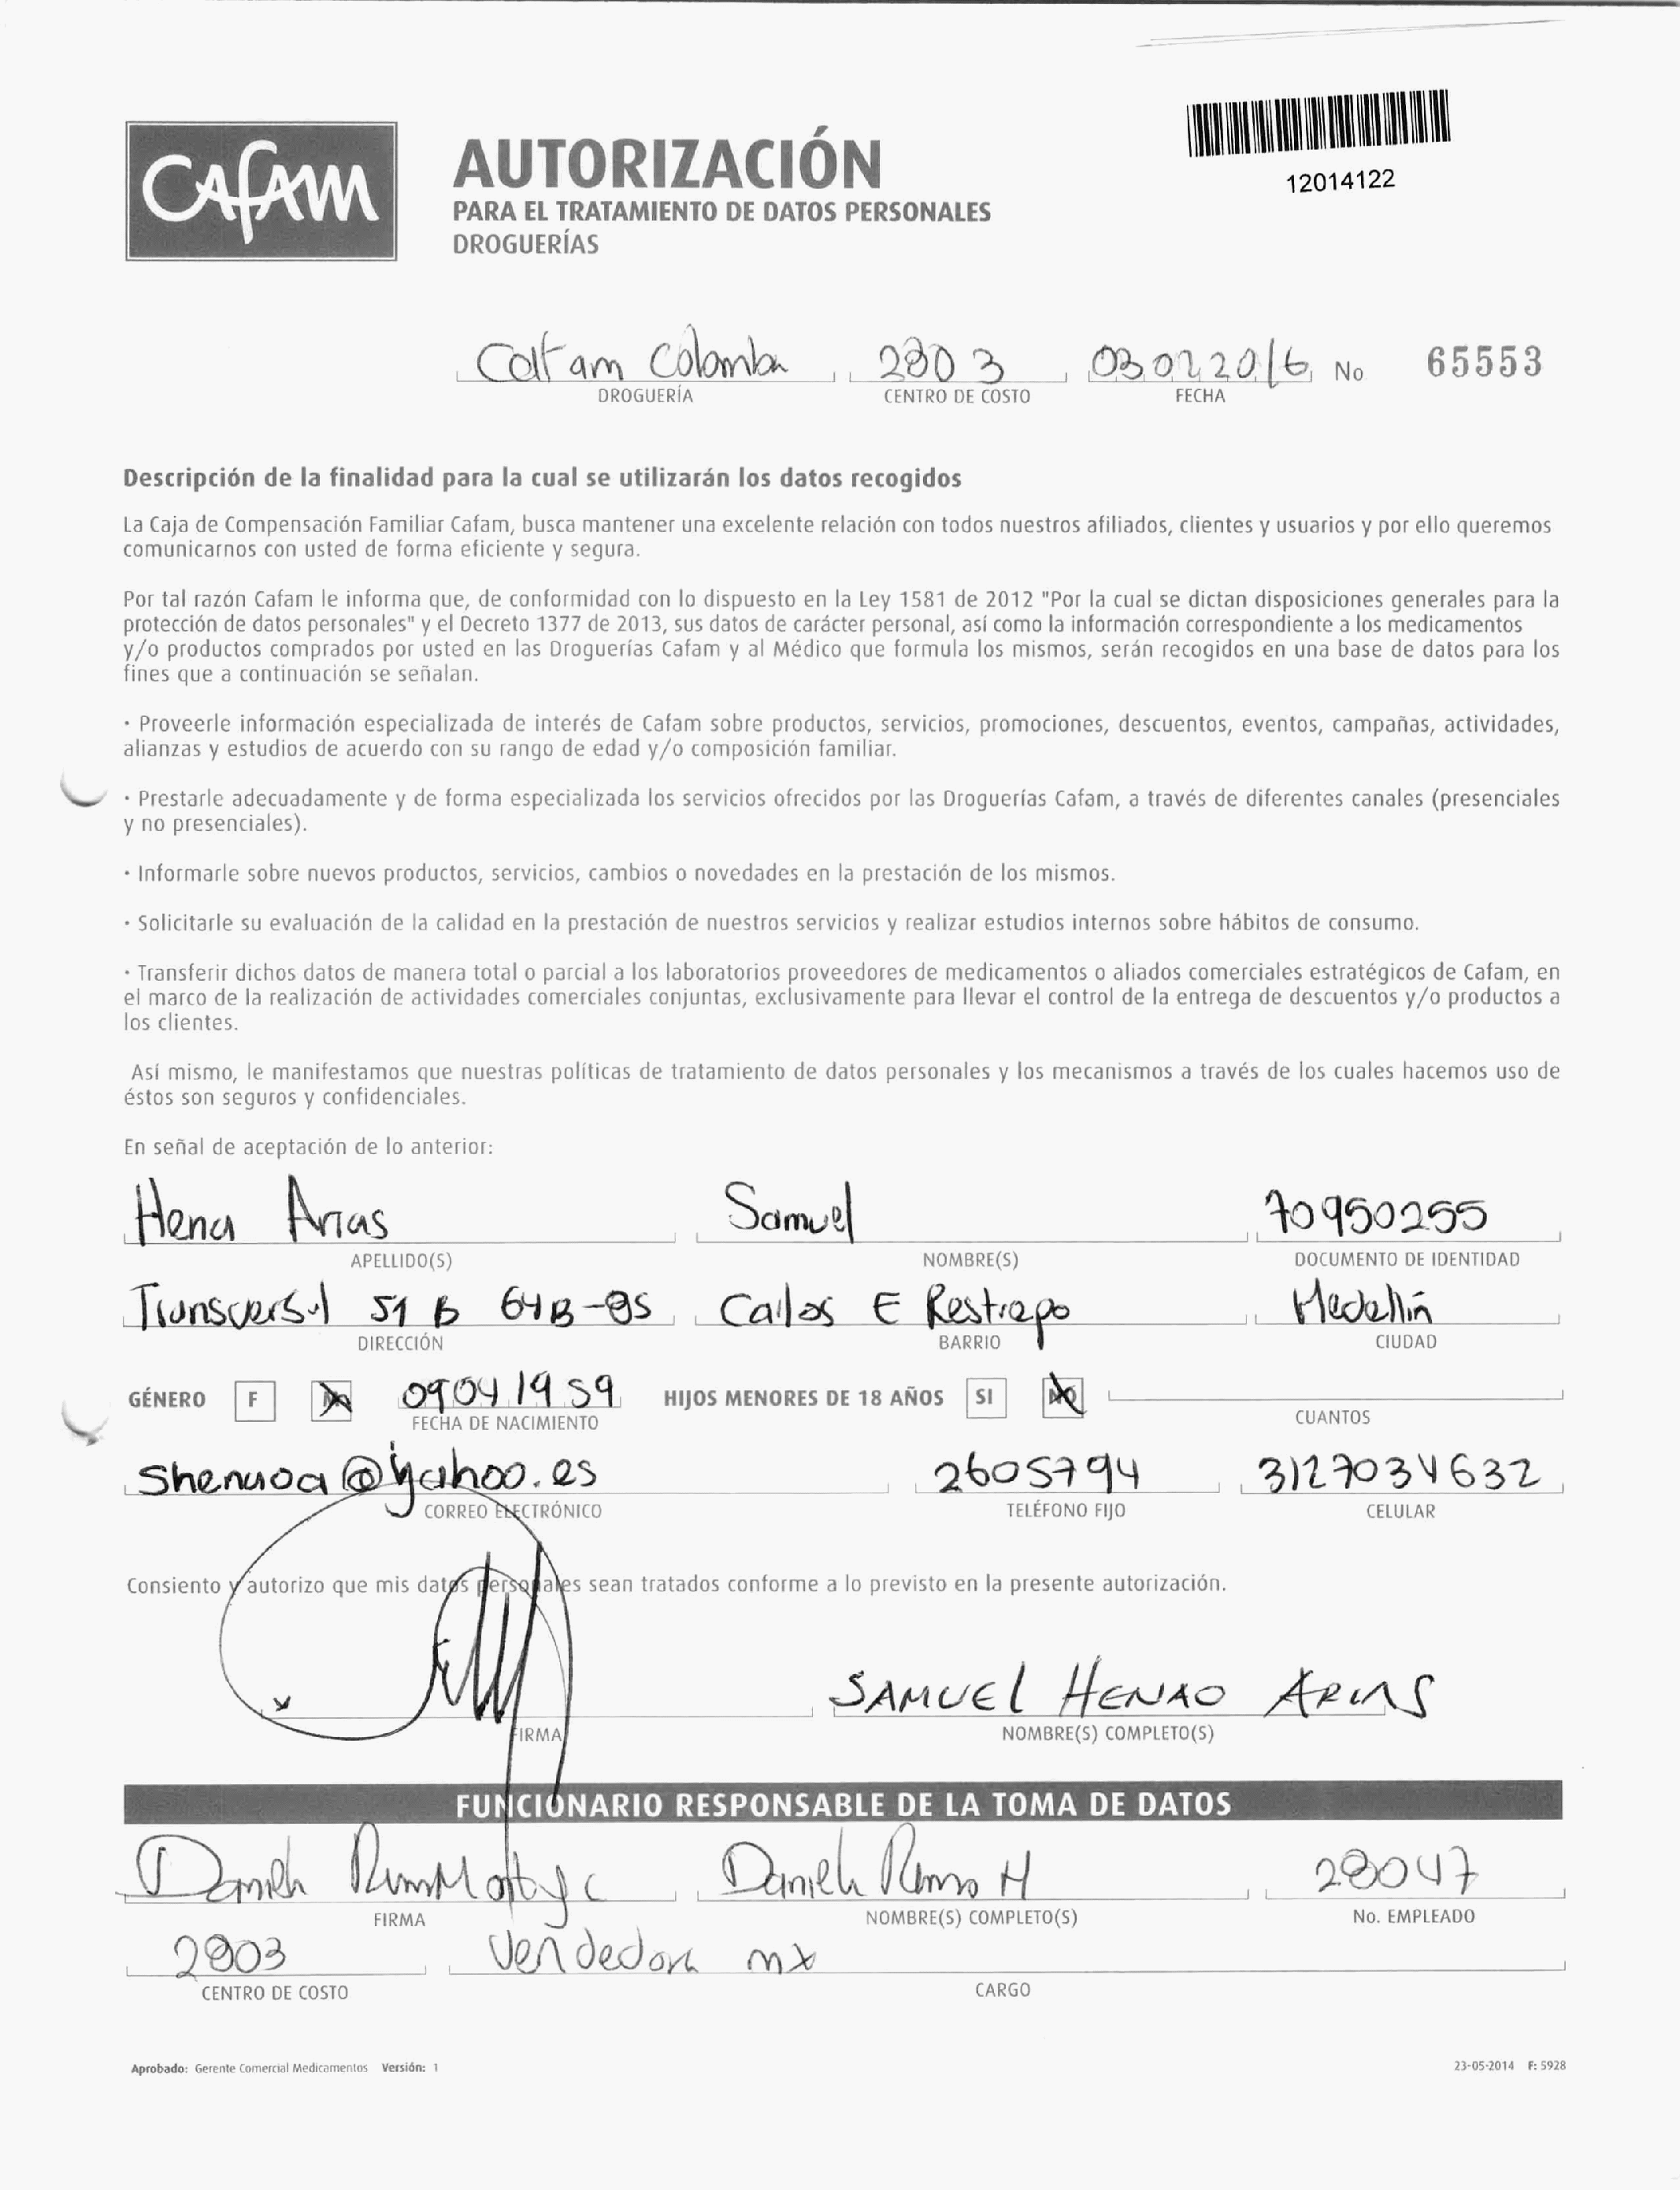 CAFAM
AUTORIZACIÓN
PARA EL TRATAMIENTO DE DATOS PERSONALES
DROGUERÍAS
12014122
Colombia 2803 03 02 2016 No 65553
DROGUERÍA CENTRO DE COSTO FECHA
Descripción de la finalidad para la cual se utilizarán los datos recogidos
La Caja de Compensación Familiar Cafam, busca mantener una excelente relación con todos nuestros afiliados, clientes y usuarios y por ello queremos
comunicarnos con usted de forma eficiente y segura.
Por tal razón Cafam le informa que, de conformidad con lo dispuesto en la Ley 1581 de 2012 "Por la cual se dictan disposiciones generales para la
protección de datos personales" y el Decreto 1377 de 2013, sus datos de carácter personal, así como la información correspondiente a los medicamentos
y/o productos comprados por usted en las Droguerías Cafam y al Médico que formula los mismos, serán recogidos en una base de datos para los
fines que a continuación se señalan.
· Proveerle información especializada de interés de Cafam sobre productos, servicios, promociones, descuentos, eventos, campañas, actividades,
alianzas y estudios de acuerdo con su rango de edad y/o composición familiar.
· Prestarle adecuadamente y de forma especializada los servicios ofrecidos por las Droguerías Cafam, a través de diferentes canales (presenciales
y no presenciales).
· Informarle sobre nuevos productos, servicios, cambios o novedades en la prestación de los mismos.
· Solicitarle su evaluación de la calidad en la prestación de nuestros servicios y realizar estudios internos sobre hábitos de consumo.
· Transferir dichos datos de manera total o parcial a los laboratorios proveedores de medicamentos o aliados comerciales estratégicos de Cafam, en
el marco de la realización de actividades comerciales conjuntas, exclusivamente para llevar el control de la entrega de descuentos y/o productos a
los clientes.
Así mismo, le manifestamos que nuestras políticas de tratamiento de datos personales y los mecanismos a través de los cuales hacemos uso de
éstos son seguros y confidenciales.
En señal de aceptación de lo anterior:
Arias Samuel 70950255
APELLIDO(S) NOMBRE(S) DOCUMENTO DE IDENTIDAD
Transversal 51 B 64B-85 Carlos E Restrepo Medellin
DIRECCIÓN BARRIO CIUDAD
GÉNERO F 09 04 1959 HIJOS MENORES DE 18 AÑOS SI
FECHA DE NACIMIENTO CUANTOS
@yahoo.es 2605794 3127034632
CORREO ELECTRÓNICO TELÉFONO FIJO CELULAR
Consiento y autorizo que mis datos personales sean tratados conforme a lo previsto en la presente autorización.
SAMUEL HENAO ARIAS
FIRMA NOMBRE(S) COMPLETO(S)
FUNCIONARIO RESPONSABLE DE LA TOMA DE DATOS
28047
FIRMA NOMBRE(S) COMPLETO(S) No. EMPLEADO
2803 Vendedora mx
CENTRO DE COSTO CARGO
Aprobado: Gerente Comercial Medicamentos Versión: 1 23-05-2014 F: 5928